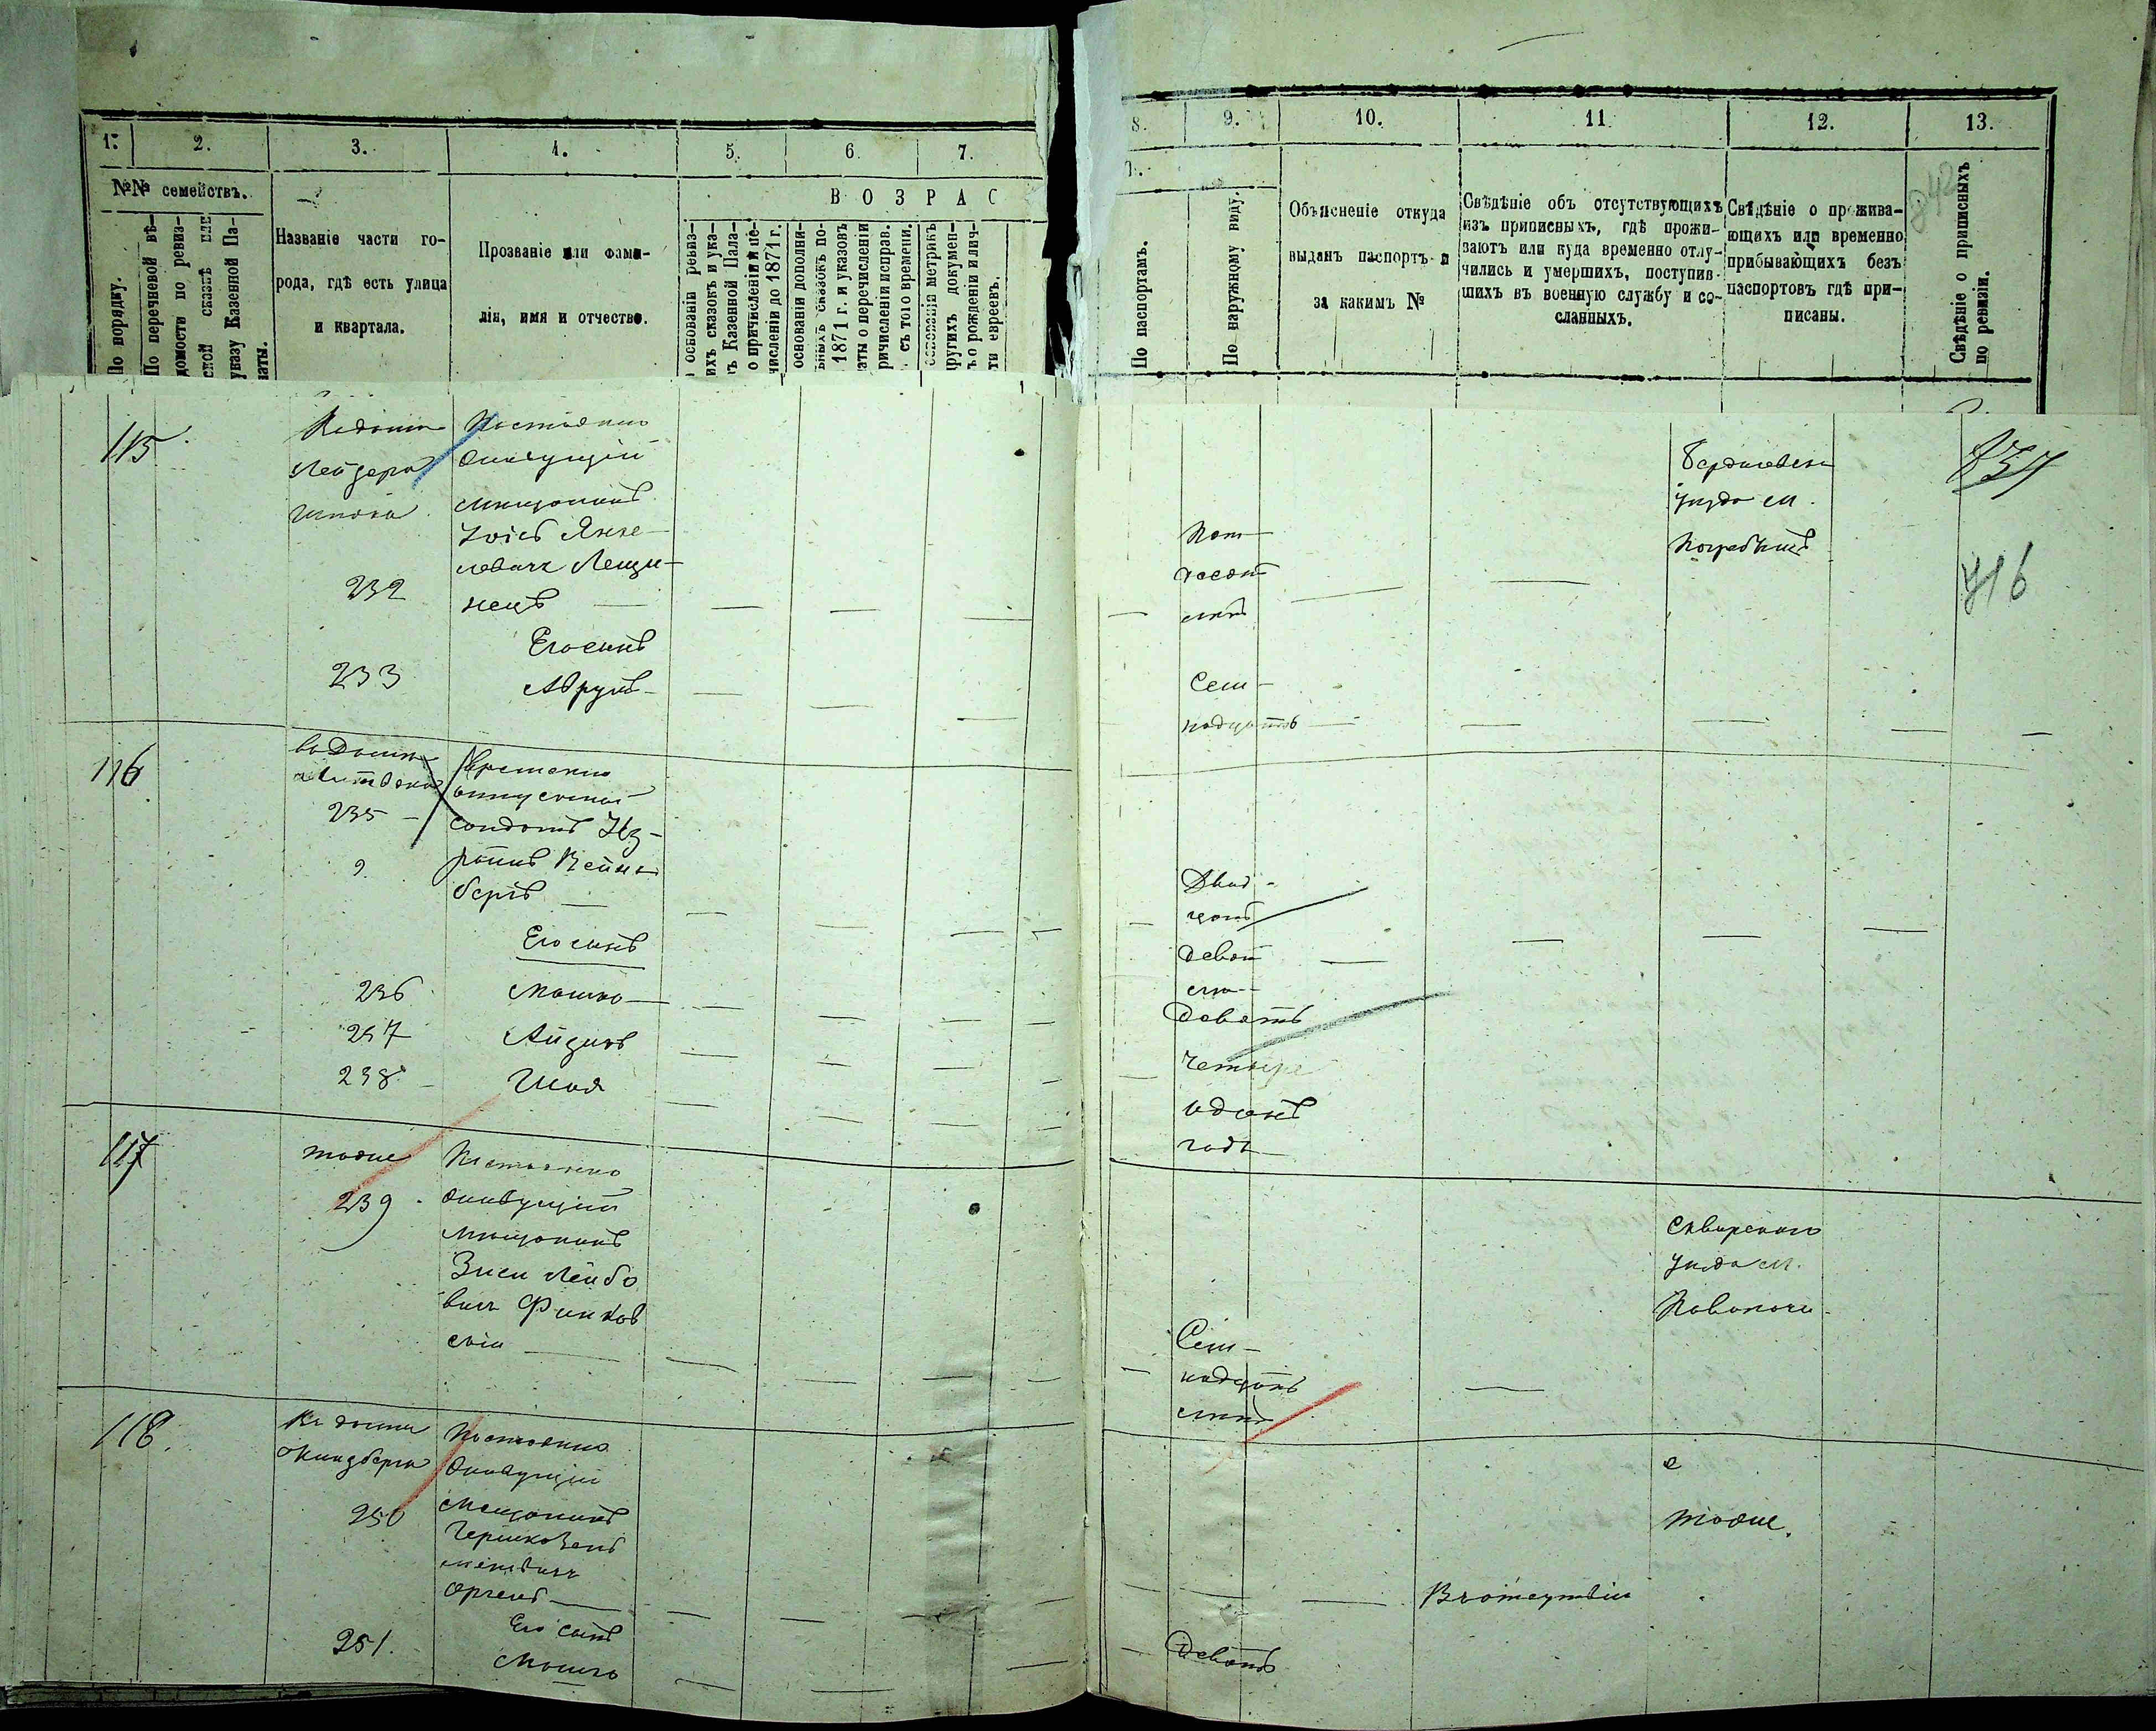 1.
2.
3.
4.
5.
6.
7.
№№ семействъ.
По порядку.
По перечневой вѣ-
домости по ревиз-
ской сказкѣ или
указу Казенной Па-
латы.
Названіе части го-
рода, гдѣ есть улица
и квартала.
Прозваніе или фами-
лія, имя и отчество.
ВОЗРАС
основаніи ревиз-
ихъ сказокъ и ука-
ъ Казенной Пала-
о причисленіи и пе-
численіи до 1871 г.
основаніи дополни-
ьныхъ сказокъ по-
1871 г. и указовъ
аты о перечисленіи
ричисленіи исправ.
съ того времени.
основаніи метрикъ
другихъ докумен-
ъ о рожденіи и лич-
ти евреевъ.
115
Лейзера
232
233
Постоянно
живущій
мищанинъ
Янке-
левичъ Лещи-
нецъ
Его сынъ
Аврумъ
116
235
236
237
238
Временно
отпускной
солдатъ Из-
раиль Вейн-
бергъ
Его сынъ
Мошко
Айзикъ
Шая
117
тоже
239
Постоянно
живущій
мищанинъ
Зиси Лейбо
вичъ Финков
скій
118.
250
251.
Постоянно
живущій
мещанинъ
Его сынъ
Мошко
8.
9.
10.
11
12.
13.
По паспортамъ.
По наружному виду.
Объясненіе откуда
выданъ паспортъ и
за какимъ №
Свѣдѣніе объ отсутствующихъ
изъ приписныхъ, гдѣ прожи-
ваютъ или куда временно отлу-
чились и умершихъ, поступив-
шихъ въ военную службу и со-
сланныхъ.
Свѣдѣніе о прожива-
ющихъ или временно
прибывающихъ безъ
паспортовъ гдѣ при-
писаны.
Свѣдѣніе о приписныхъ
по ревизіи.
Бердичевска
уѣзда м.
Погребищ
716
лѣтъ
Сем-
надцать
Двад-
цать
девять
Четыре
одинъ
годъ
Сквирскаго
уѣзда м.
Паволочи
Сем-
надцать
лѣтъ
тоже.
Въ отсутствіи
Девять